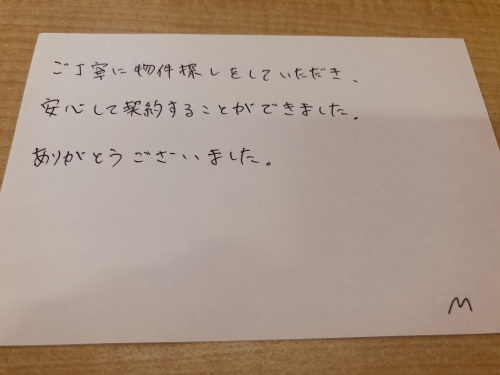 ご丁寧に物件探しをしていただき、
安心して契約することができました。
ありがとうございました。
M